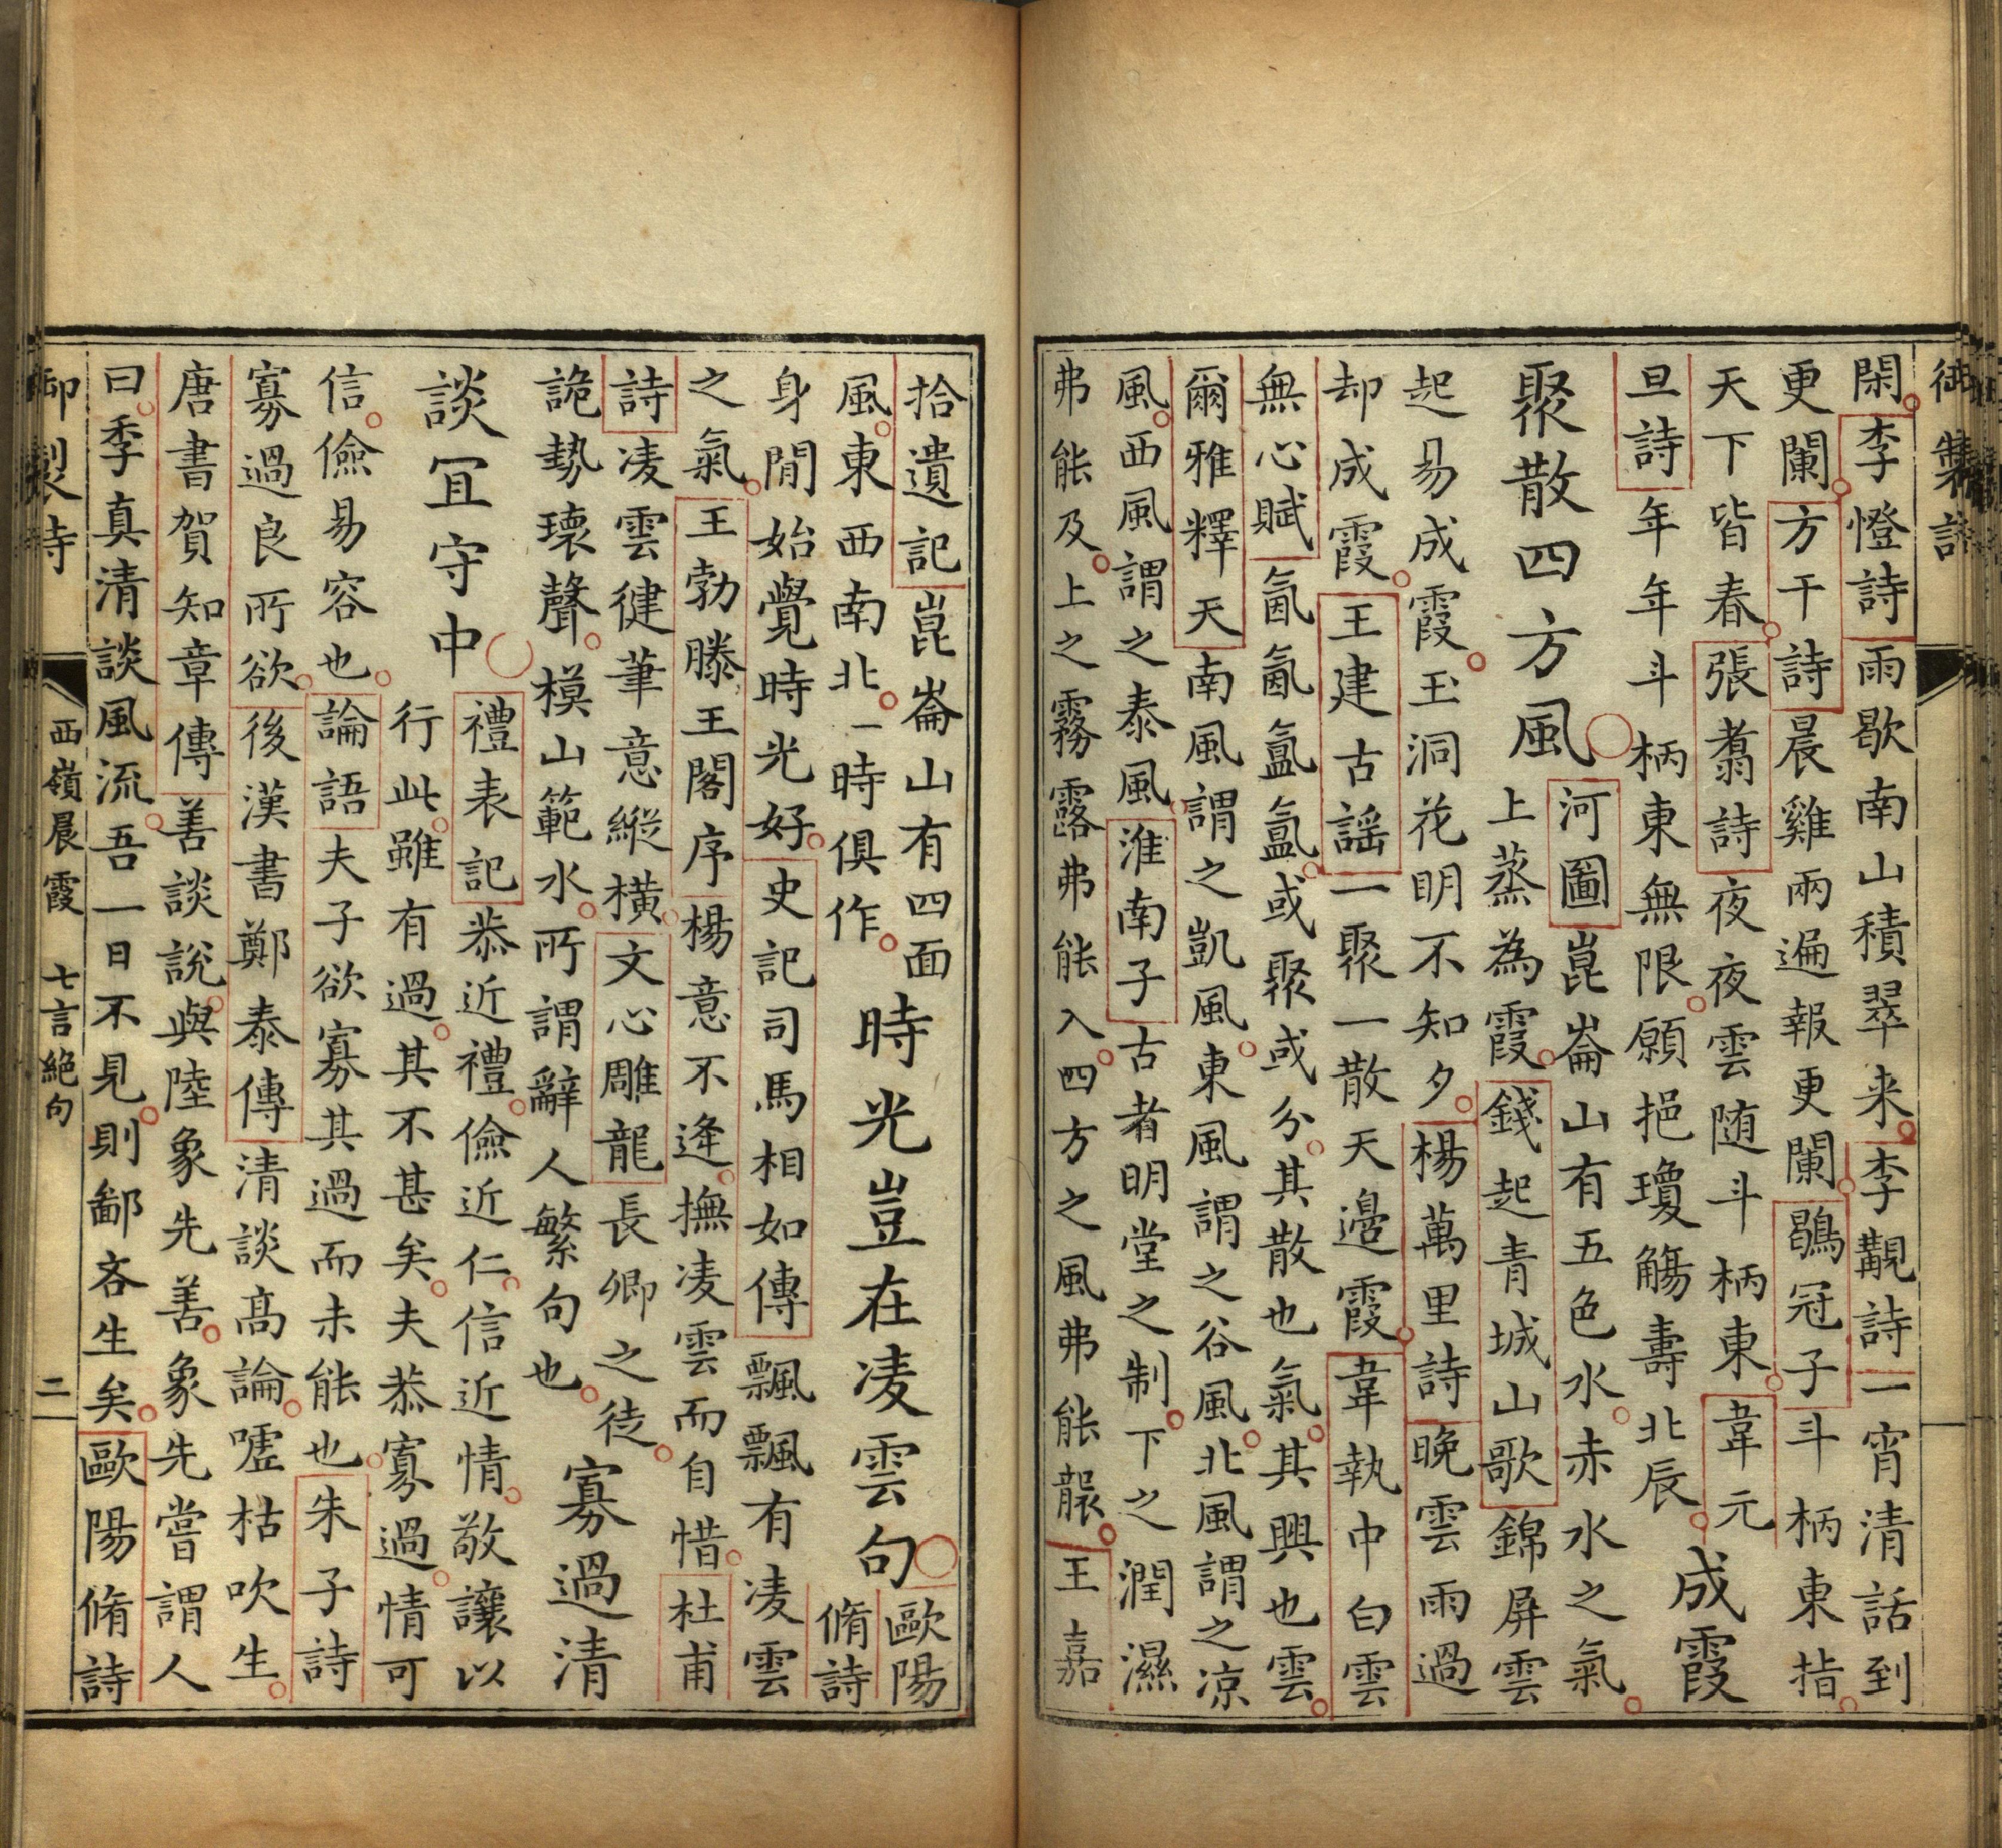 御製詩
閑李燈詩雨歇南山積翠来李觀詩一宵清話到
更闌方干詩晨雞兩遍報更闌鶡冠子斗柄東指
天下皆春張翥詩夜夜雲随斗柄東韋元成霞
旦詩年年斗柄東無限願挹瓊觴壽北辰
聚散四方風河圖崑崙山有五色水赤水之氣
上蒸為霞錢起青城山歌錦屏雲
起易成霞玉洞花明不知夕楊萬里詩晚雲雨過
却成霞王建古謡一聚一散天邉霞韋執中白雲
無心賦氤氤氳氳或聚或分其散也氣其興也雲
爾雅釋天南風謂之凱風東風謂之谷風北風謂之凉
風西風謂之泰風淮南子古者明堂之制下之潤濕
弗能及上之霧露弗能入四方之風弗能襲王嘉
拾遺記崑崙山有四面時光豈在凌雲句歐陽
風東西南北一時俱作脩詩
身閒始覺時光好史記司馬相如傳飄飄有凌雲
之氣王勃滕王閣序楊意不逢撫凌雲而自惜杜甫
詩凌雲健筆意縱橫文心雕龍長卿之徒
詭勢瓌聲模山範水所謂辭人繁句也寡過清
談冝守中禮表記恭近禮儉近仁信近情敬讓以
行此雖有過其不甚矣夫恭寡過情可
信儉易容也論語夫子欲寡其過而未能也朱子詩
寡過良所欲後漢書鄭泰傳清談髙論嘘枯吹生
唐書賀知章傳善談説與陸象先善象先嘗謂人
曰季真清談風流吾一日不見則鄙吝生矣歐陽脩詩
御製詩 西嶺晨霞 七言絕句 二